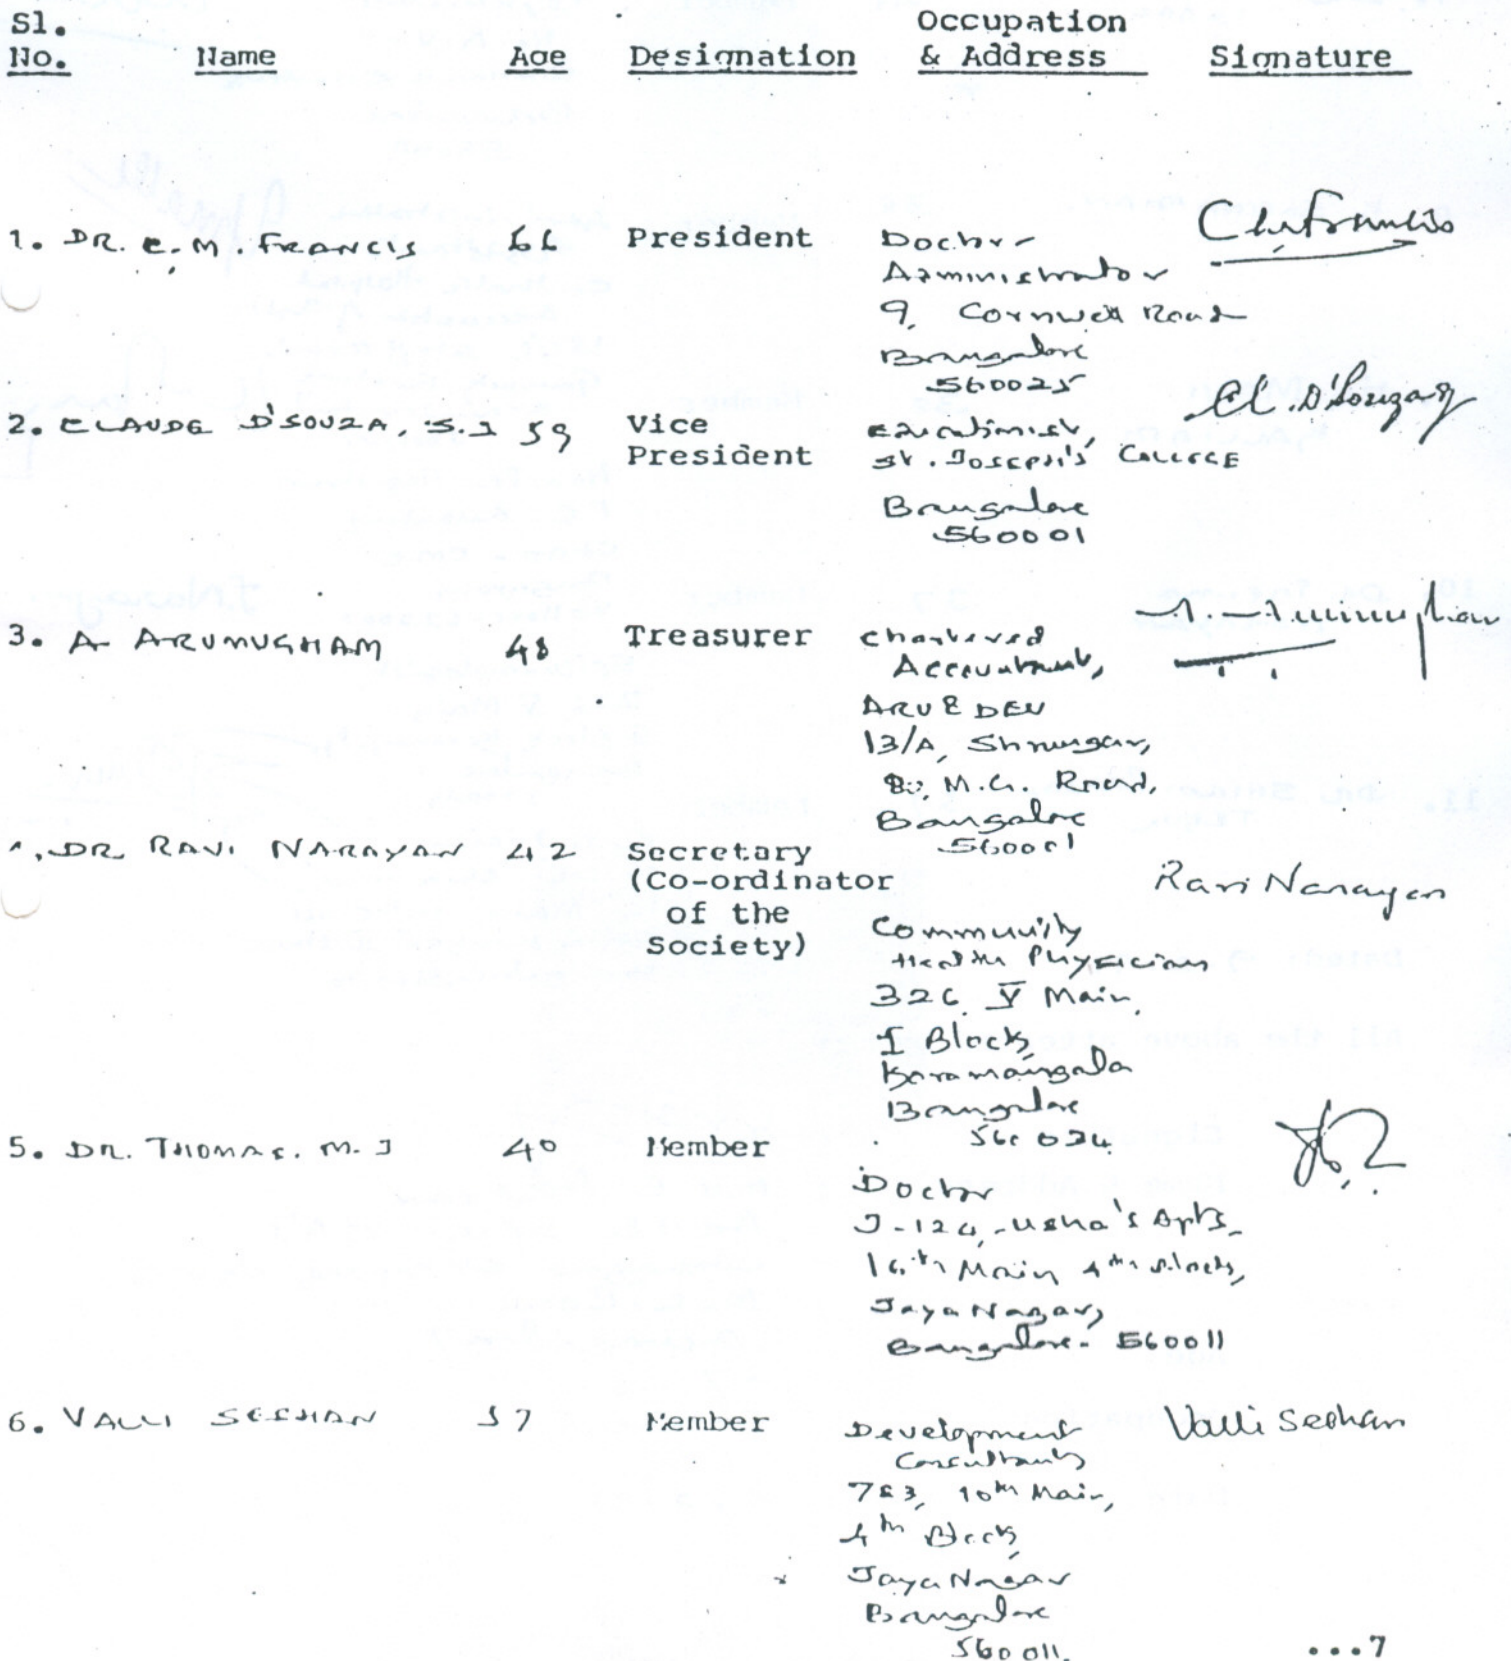 Sl. No. Name Age Designation Occupation & Address Signature
1. DR. C. M. FRANCIS 66 President Doctor
Administrator
9, Cornwell Road
Bangalore
560025
CM Francis
2. CLAUDE D'SOUZA, S.J 59 Vice President Educationist,
St. JOSEPH'S COLLEGE
Bangalore
560001
Cl. D'Souza SJ
3. A ARUMUGHAM 48 Treasurer Chartered
Accountant,
ARU & DEV
13/A, Shrungar,
80, M.G. Road,
Bangalore
560001
4. DR. RAVI NARAYAN 42 Secretary
(Co-ordinator
of the
Society)
Community
Health Physician
326, V Main,
I Block,
Koramangala
Bangalore
560034
Ravi Narayan
5. DR. THOMAS. M. J 40 Member
Doctor
J-124, Usha's Apts,
16th Main 4th Block,
Jaya Nagar,
Bangalore - 560011
6. VALLI SESHAN 57 Member Development
Consultant,
783, 10th Main,
4th Block,
Jaya Nagar
Bangalore
560011.
Valli Seshan
...7